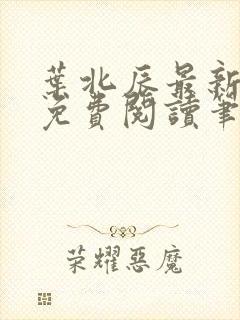 葉北辰最新
免費閱讀筆
荣耀惡魔